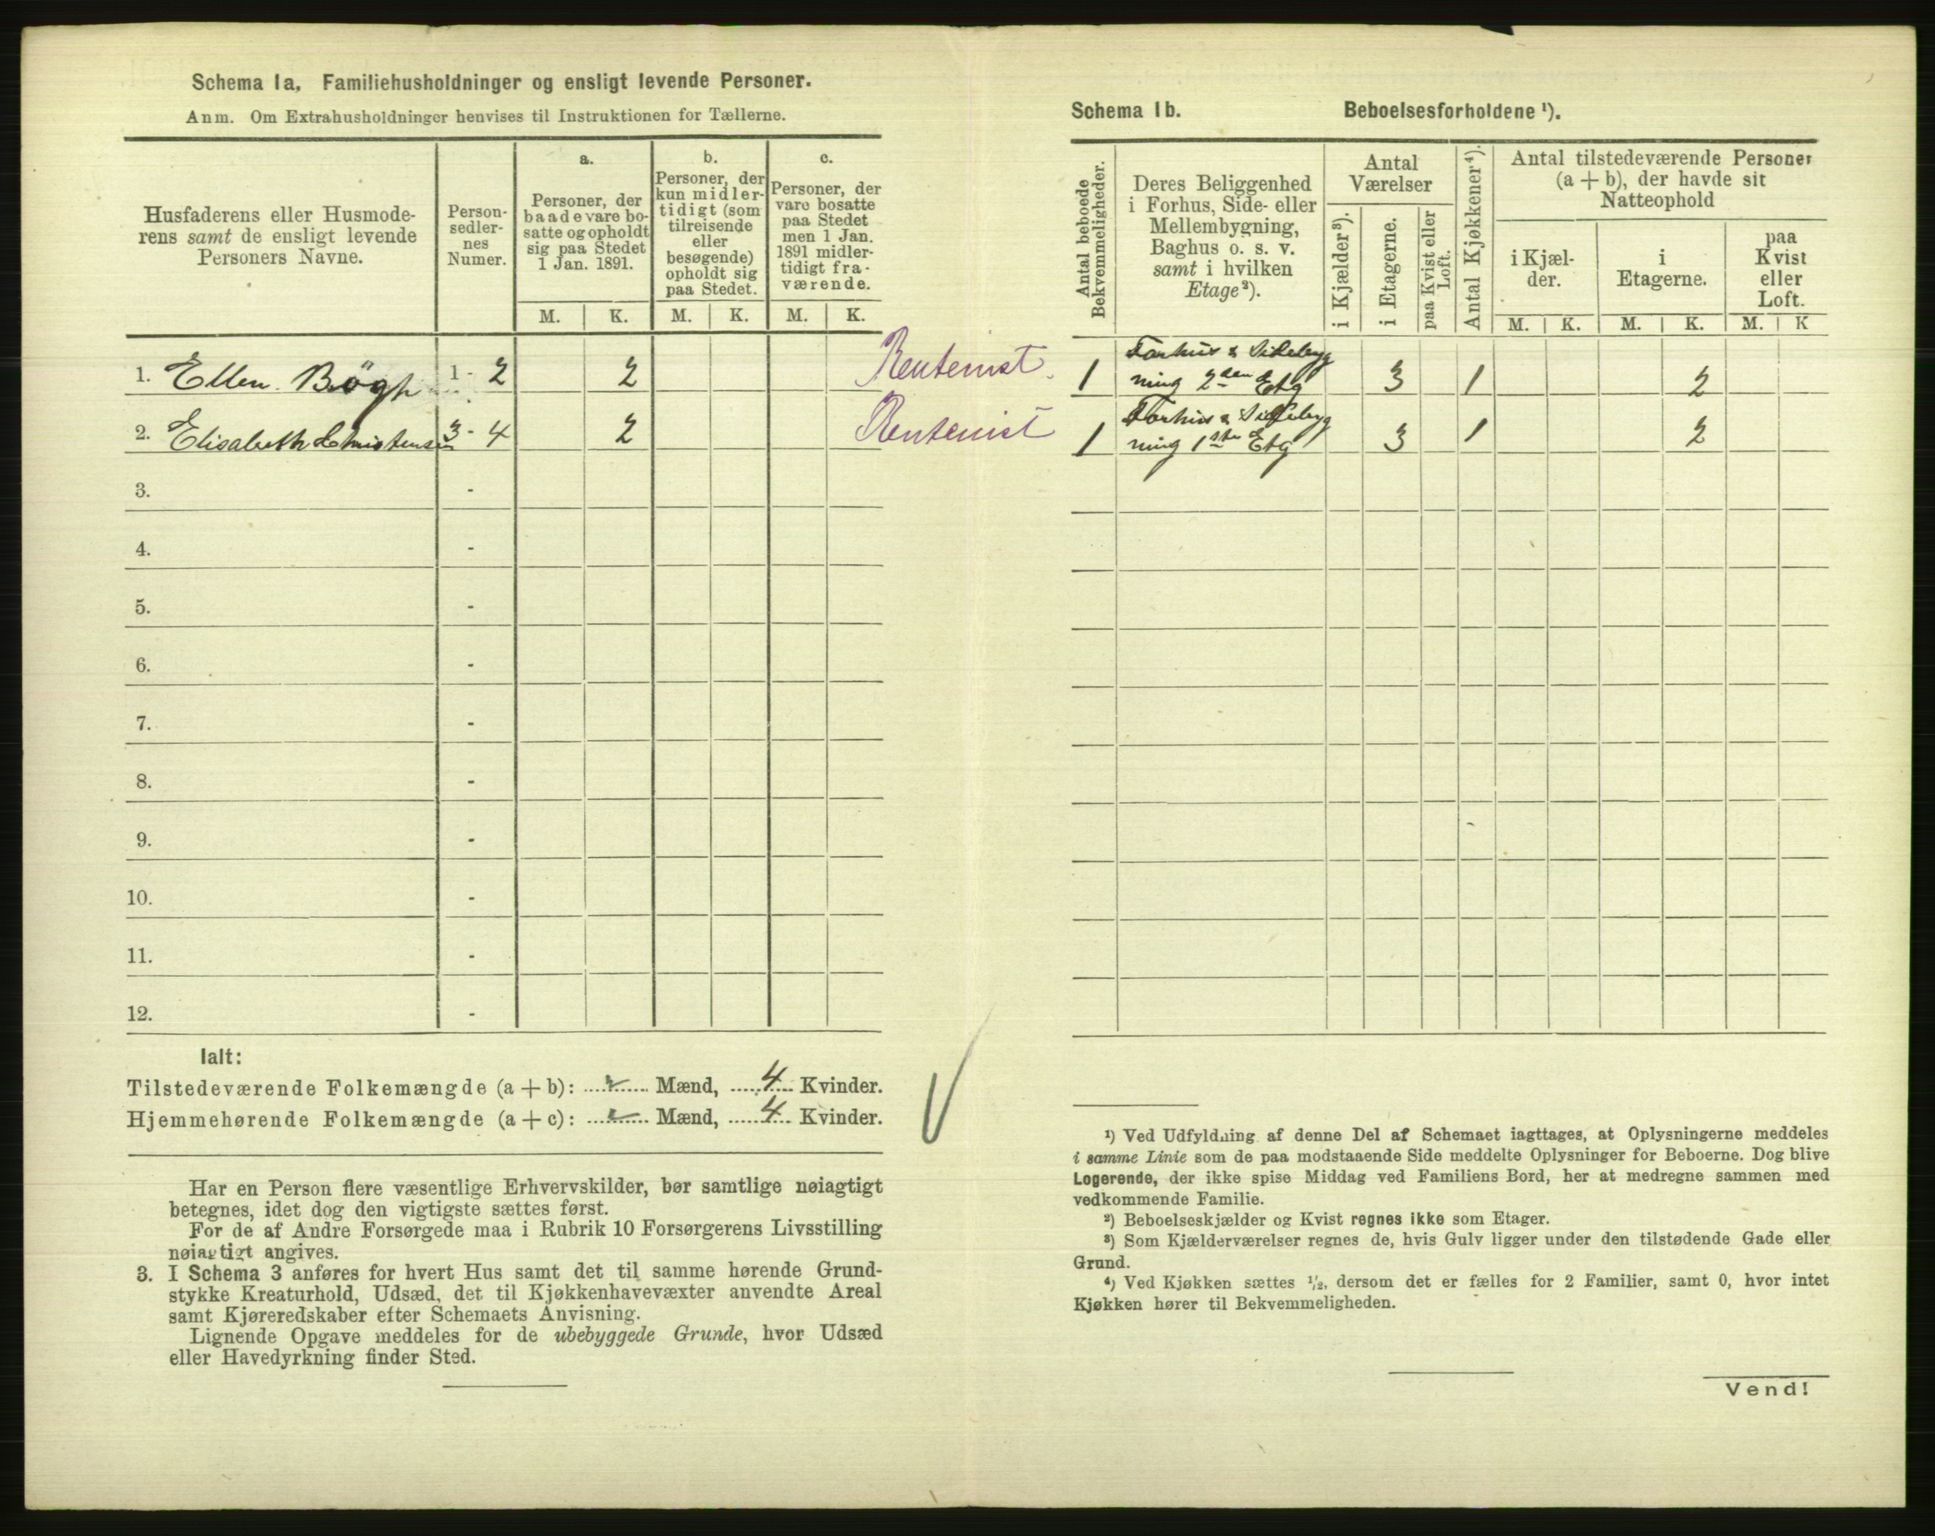 Schema 1a. Familiehusholdninger og ensligt levende Personer.
Anm. Om Extrahusholdninger henvises til Instruktionen for Tællerne.
Husfaderens eller Husmode-
rens samt de ensligt levende
Personers Navne.
Person-
sedler-
nes
Numer.
a.
Personer, der
baade vare bo-
satte og opholdt
sig paa Stedet
1 Jan. 1891.
b.
Personer, der
kun midler-
tidigt (som
tilreisende
eller
besøgende)
opholdt sig
paa Stedet.
c.
Personer, der
vare bosatte
paa Stedet
men 1 Jan.
1891 midler-
tidigt fra-
værende.
M. K. M. K. M. K.
1. Ellen Bögh 1 - 2 2 Rentenist.
2. Elisabeth Christensen 3 - 4 2 Rentenist
3. -
4. -
5. -
6. -
7. -
8. -
9. -
10. -
11. -
12. -
Ialt:
Tilstedeværende Folkemængde (a + b): Mænd, 4 Kvinder.
Hjemmehørende Folkemængde (a + c): Mænd, 4 Kvinder.
Har en Person flere væsentlige Erhvervskilder, bør samtlige nøiagtigt
betegnes, idet dog den vigtigste sættes først.
For de af Andre Forsørgede maa i Rubrik 10 Forsørgerens Livsstilling
nøiagtigt angives.
3. I Schema 3 anføres for hvert Hus samt det til samme hørende Grund-
stykke Kreaturhold, Udsæd, det til Kjøkkenhavevæxter anvendte Areal
samt Kjøreredskaber efter Schemaets Anvisning.
Lignende Opgave meddeles for de ubebyggede Grunde, hvor Udsæd
eller Havedyrkning finder Sted.
Schema 1b. Beboelsesforholdene ¹).
Antal beboede
Bekvemmeligheder.
Deres Beliggenhed
i Forhus, Side- eller
Mellembygning,
Baghus o. s. v.
samt i hvilken
Etage²).
Antal
Værelser
i Kjælder³).
i Etagerne.
paa Kvist eller
Loft.
Antal Kjøkkener⁴).
Antal tilstedeværende Personer
(a + b), der havde sit
Natteophold
i Kjæl-
der.
i
Etagerne.
paa
Kvist
eller
Loft.
M. K. M. K. M. K
1 Forhus & Sidebyg
ning 2den Etg 3 1 2
1 Forhus & Sidebyg
ning 1ste Etg 3 1 2
¹) Ved Udfyldning af denne Del af Schemaet iagttages, at Oplysningerne meddeles
i samme Linie som de paa modstaaende Side meddelte Oplysninger for Beboerne. Dog blive
Logerende, der ikke spise Middag ved Familiens Bord, her at medregne sammen med
vedkommende Familie.
²) Beboelseskjælder og Kvist regnes ikke som Etager.
³) Som Kjælderværelser regnes de, hvis Gulv ligger under den tilstødende Gade eller
Grund.
⁴) Ved Kjøkken sættes ½, dersom det er fælles for 2 Familier, samt 0, hvor intet
Kjøkken hører til Bekvemmeligheden.
Vend!